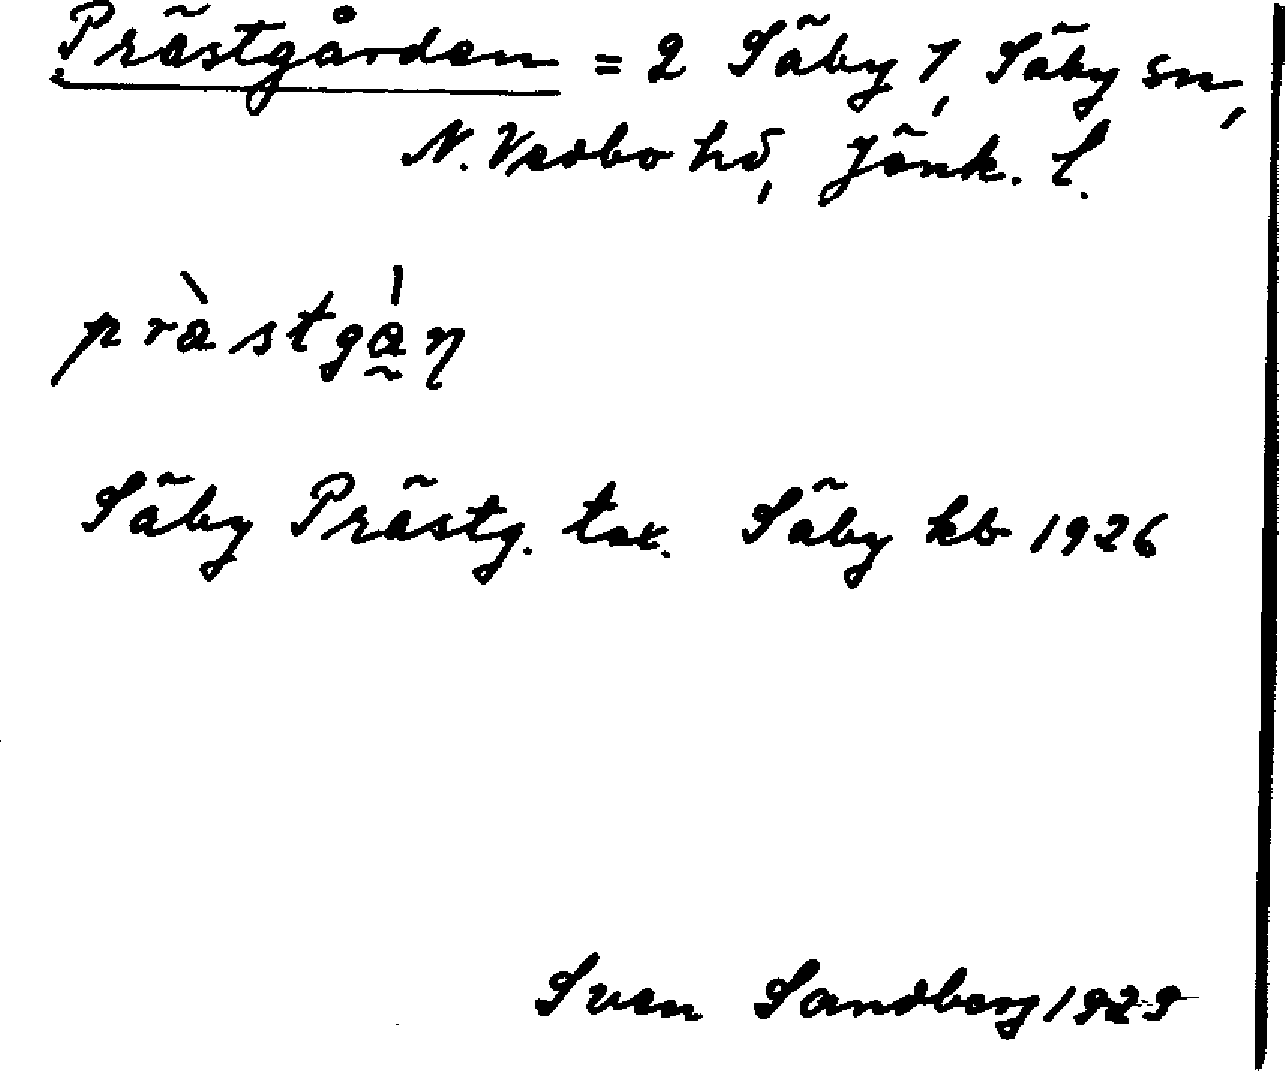 Prästgården = 2 Säby 1, Säby sn,
N. Vedbo hd, Jönk. l.
pràstgá̰ɳ
Säby Prästg. tax. Säby kb 1926
Sven Sandberg 1929